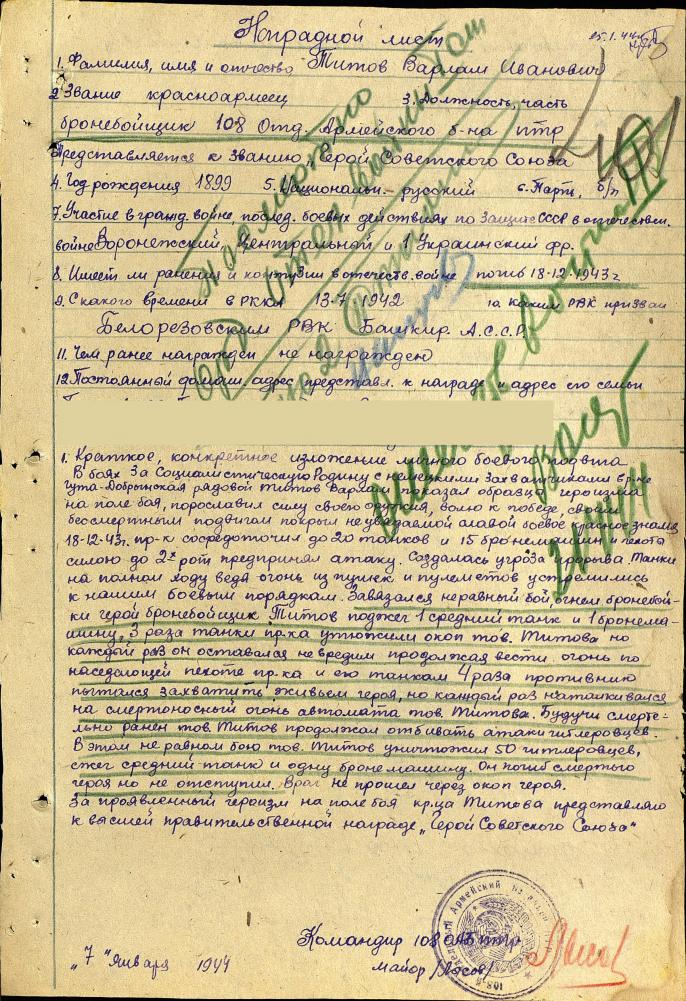 Наградной лист
1. Фамилия, имя и отчество Титов Варлам Иванович
2 Звание красноармеец 3. Должность, часть
бронебойщик 108 Отд. Армейского б-на ПТР
Представляется к званию „Герой Советского Союза
4. Год рождения 1899 5. Националь. - русский 6. Парт. б/п
7. Участие в гражд. войне, послед. боевых действиях по защите СССР в отечествен.
войне Воронежский, Центральной и 1 Украинский фр.
8. Имеет ли ранения и контузии в отечеств. войне погиб 18-12-1943 г
9. С какого времени в РККА 13-7-1942 10 каким РВК призван
Белорезовским РВК Башкир А.С.С.Р.
11. Чем ранее награжден не награжден
12. Постоянный домаш. адрес представл. к награде и адрес его семьи
1. Краткое, конкретное изложение личного боевого подвига
В боях за Социалистическую Родину с немецкими захватчиками в р-не
Гута-Добрынская рядовой Титов Варлам показал образцы героизма
на поле боя, порославил силу своего оружия, волю к победе, своим
бессмертным подвигом покрыл неувядаемой славой боевое красное знамя
18-12-43г. пр-к сосредоточил до 20 танков и 15 бронемашин и пехоты
силою до 2х рот предпринял атаку. Создалась угроза прорыва. Танки
на полном ходу ведя огонь из пушек и пулеметов устремились
к нашим боевым порядкам. Завязался неравный бой, огнем бронебой-
ки герой бронебойщик Титов поджег 1 средний танк и 1 бронема-
шину, 3 раза танки пр-ка утюжили окоп тов. Титова но
каждый раз он оставался невредим продолжая вести огонь по
наседающей пехоте пр-ка и его танкам 4 раза противник
пытался захватить живьем героя, но каждый раз наталкивался
на смертоносный огонь автомата тов. Титова. Будучи смерте-
льно ранен тов. Титов продолжал отбивать атаки гитлеровцев.
В этом не равном бою тов. Титов уничтожил 50 гитлеровцев,
сжег средний танк и одну бронемашину. Он погиб смертью
героя но не отступил. Враг не прошел через окоп героя.
За проявленный героизм на поле боя кр-ца Титова представляю
к высшей правительственной награде „Герой Советского Союза"
Командир 108 ОАБ ПТР
майор /Лясов/
„7" Января 1944